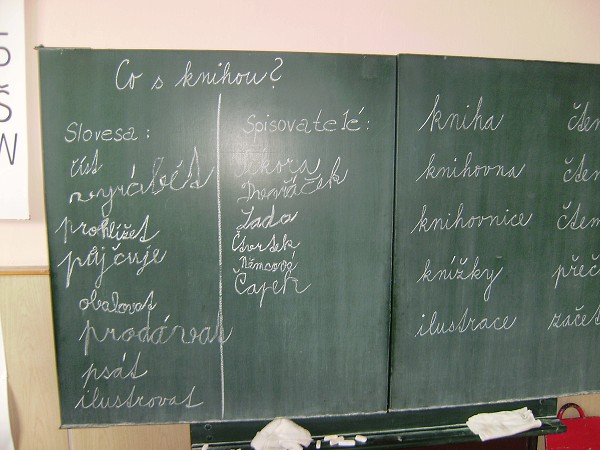 Co s knihou?
Slovesa:
číst
vyrábět
prohlížet
půjčuje
obalovat
prodávat
psát
ilustrovat
Spisovatelé:
Sekora
Dvořáček
Lada
Čtvrtek
Němcová
Čapek
kniha
knihovna
knihovnice
knížky
ilustrace
čten
čtem
čtem
přeč
začet
Š
W